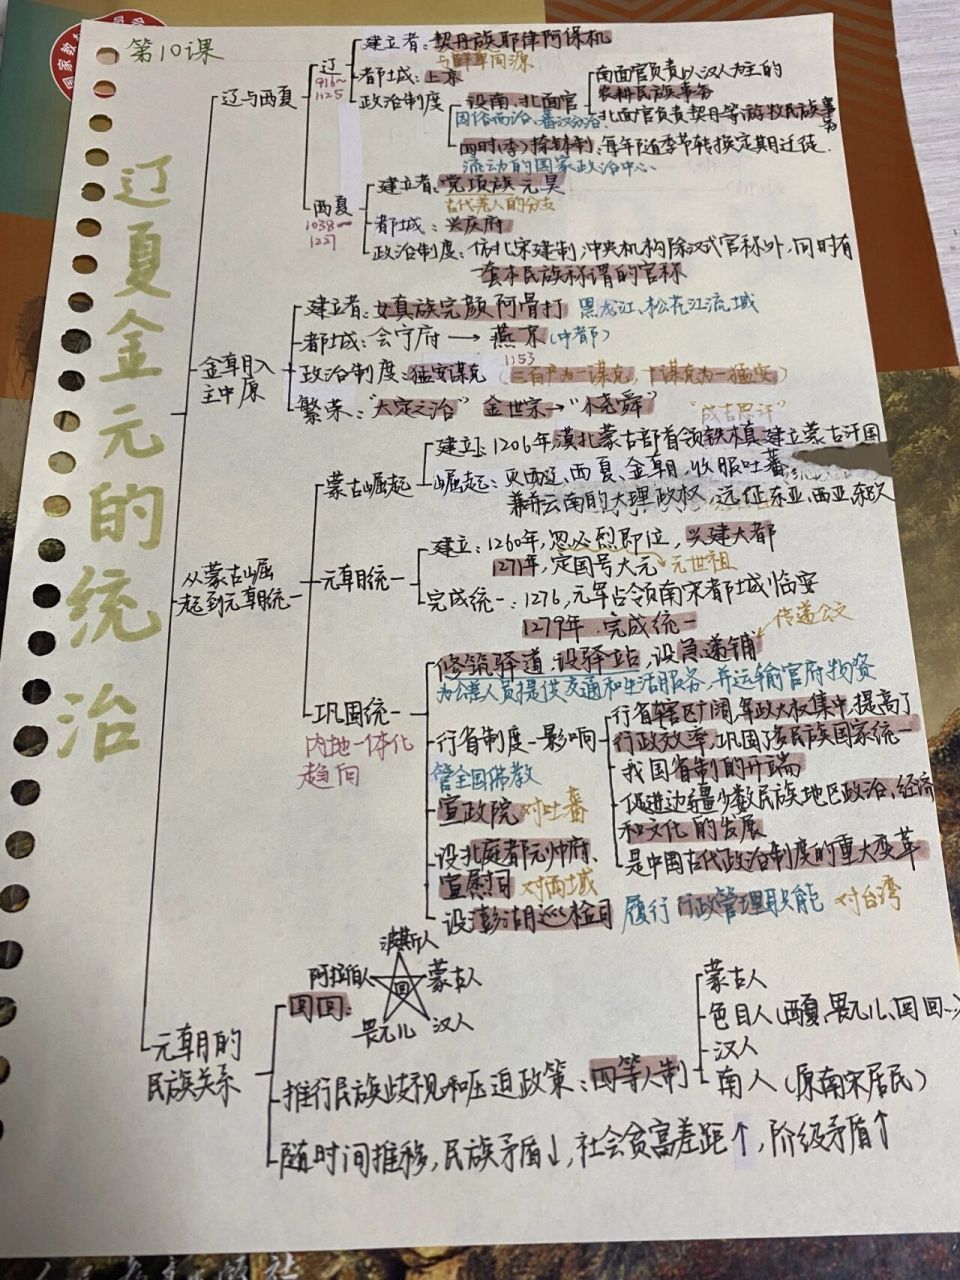 第10课
辽夏金元的统治
辽与西夏
辽
916~
1125
建立者:契丹族耶律阿保机
与鲜卑同源
都城:上京
政治制度
设南、北面官
因俗而治、蕃汉分治
南面官负责以汉人为主的
农耕民族事务
北面官负责契丹等游牧民族事务
四时(季)捺钵制:每年随季节转换定期迁徙.
流动的国家政治中心.
西夏
1038~
1227
建立者:党项族元昊
古代羌人的分支
都城:兴庆府
政治制度:仿北宋建制,中央机构除汉式官称外,同时有
一套本民族称谓的官称
金朝入
主中原
建立者:女真族完颜阿骨打 黑龙江、松花江流域
都城:会宁府→燕京(中都)
1153
政治制度:猛安谋克(三百户为一谋克,十谋克为一猛安)
繁荣:"大定之治" 金世宗→"小尧舜"
从蒙古崛
起到元朝统一
蒙古崛起
"成吉思汗"
建立:1206年,漠北蒙古部首领铁木真建立蒙古汗国
崛起:灭西辽、西夏、金朝,收服吐蕃
兼并云南的大理政权,远征东亚、西亚、东欧
元朝统一
建立:1260年,忽必烈即位,兴建大都
1271年,定国号大元→元世祖
完成统一:1276,元军占领南宋都城临安
1279年.完成统一
巩固统一
内地一体化
趋向
修筑驿道,设驿站,设急递铺 传递公文
为公差人员提供交通和生活服务,并运输官府物资
行省制度-影响
行省辖区广阔,军政大权集中,提高了
行政效率,巩固了多民族国家统一
我国省制的开端
促进边疆少数民族地区政治、经济
和文化的发展
是中国古代政治制度的重大变革
管全国佛教
宣政院 对吐蕃
设北庭都元帅府、
宣慰司 对西域
设澎湖巡检司 履行行政管理职能 对台湾
元朝的
民族关系
回回:
波斯人
阿拉伯人
蒙古人
回
畏兀儿
汉人
推行民族歧视和压迫政策:四等人制
蒙古人
色目人(西夏、畏兀儿、回回…)
汉人
南人(原南宋居民)
随时间推移,民族矛盾↓,社会贫富差距↑,阶级矛盾↑